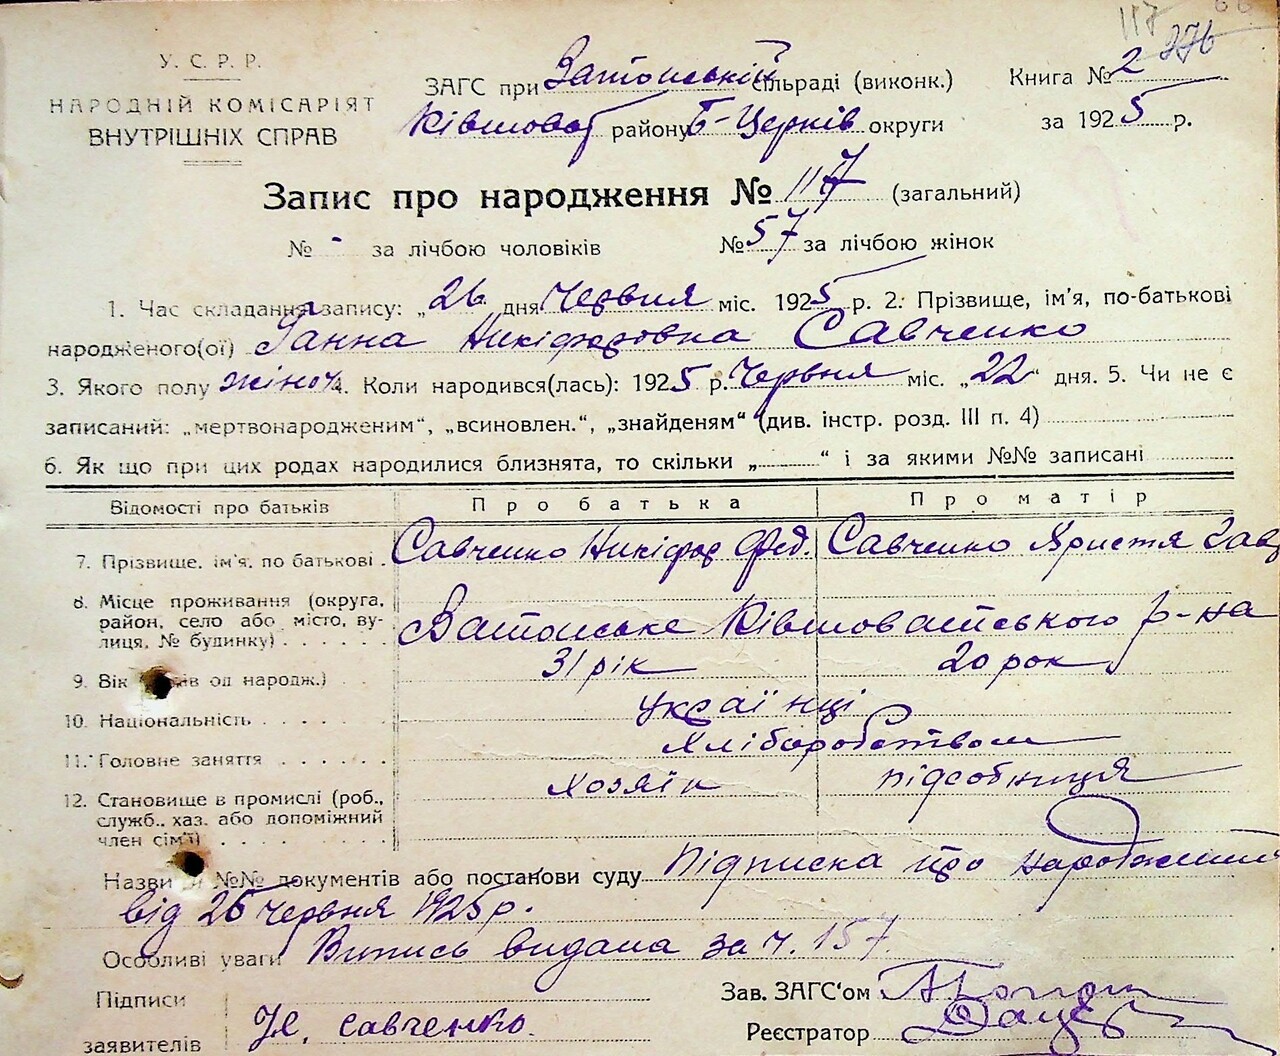 117
276
У. С. Р. Р.
НАРОДНІЙ КОМІСАРІЯТ
ВНУТРІШНІХ СПРАВ
ЗАГС при сільраді (виконк.)
району Б-Церків округи
Книга № 2
за 1925 р.
Запис про народження № 117 (загальний)
№ - за лічбою чоловіків № 57 за лічбою жінок
1. Час складання запису: „26 дня Червня міс. 1925 р. 2. Прізвище, ім'я, по-батькові
народженого(ої) Ганна Никіфоровна Савченко
3. Якого полу жіноч. 4. Коли народився(лась): 1925 р. Червня міс. „22“ дня. 5. Чи не є
записаний: „мертвонародженим“, „всиновлен.“, „знайденям“ (див. інстр. розд. III п. 4)
6. Як що при цих родах народилися близнята, то скільки „ “ і за якими №№ записані
Відомості про батьків Про батька Про матір
7. Прізвище, ім'я, по батькові. Савченко Никіфор Фед. Савченко Христя
8. Місце проживання (округа, район, село або місто, вулиця, № будинку) р-на
9. Вік од народж.) 31 рік 20 рок
10. Національність українці
11. Головне заняття Хліборобством
12. Становище в промислі (роб., служб., хаз. або допоміжний член сім'ї) Хозяїн підсобниця
Назви й №№ документів або постанови суду підписка про
від 26 червня 1925 р.
Особливі уваги Випись видана за ч. 157
Підписи
заявителів Н. Савченко.
Зав. ЗАГС'ом
Реєстратор